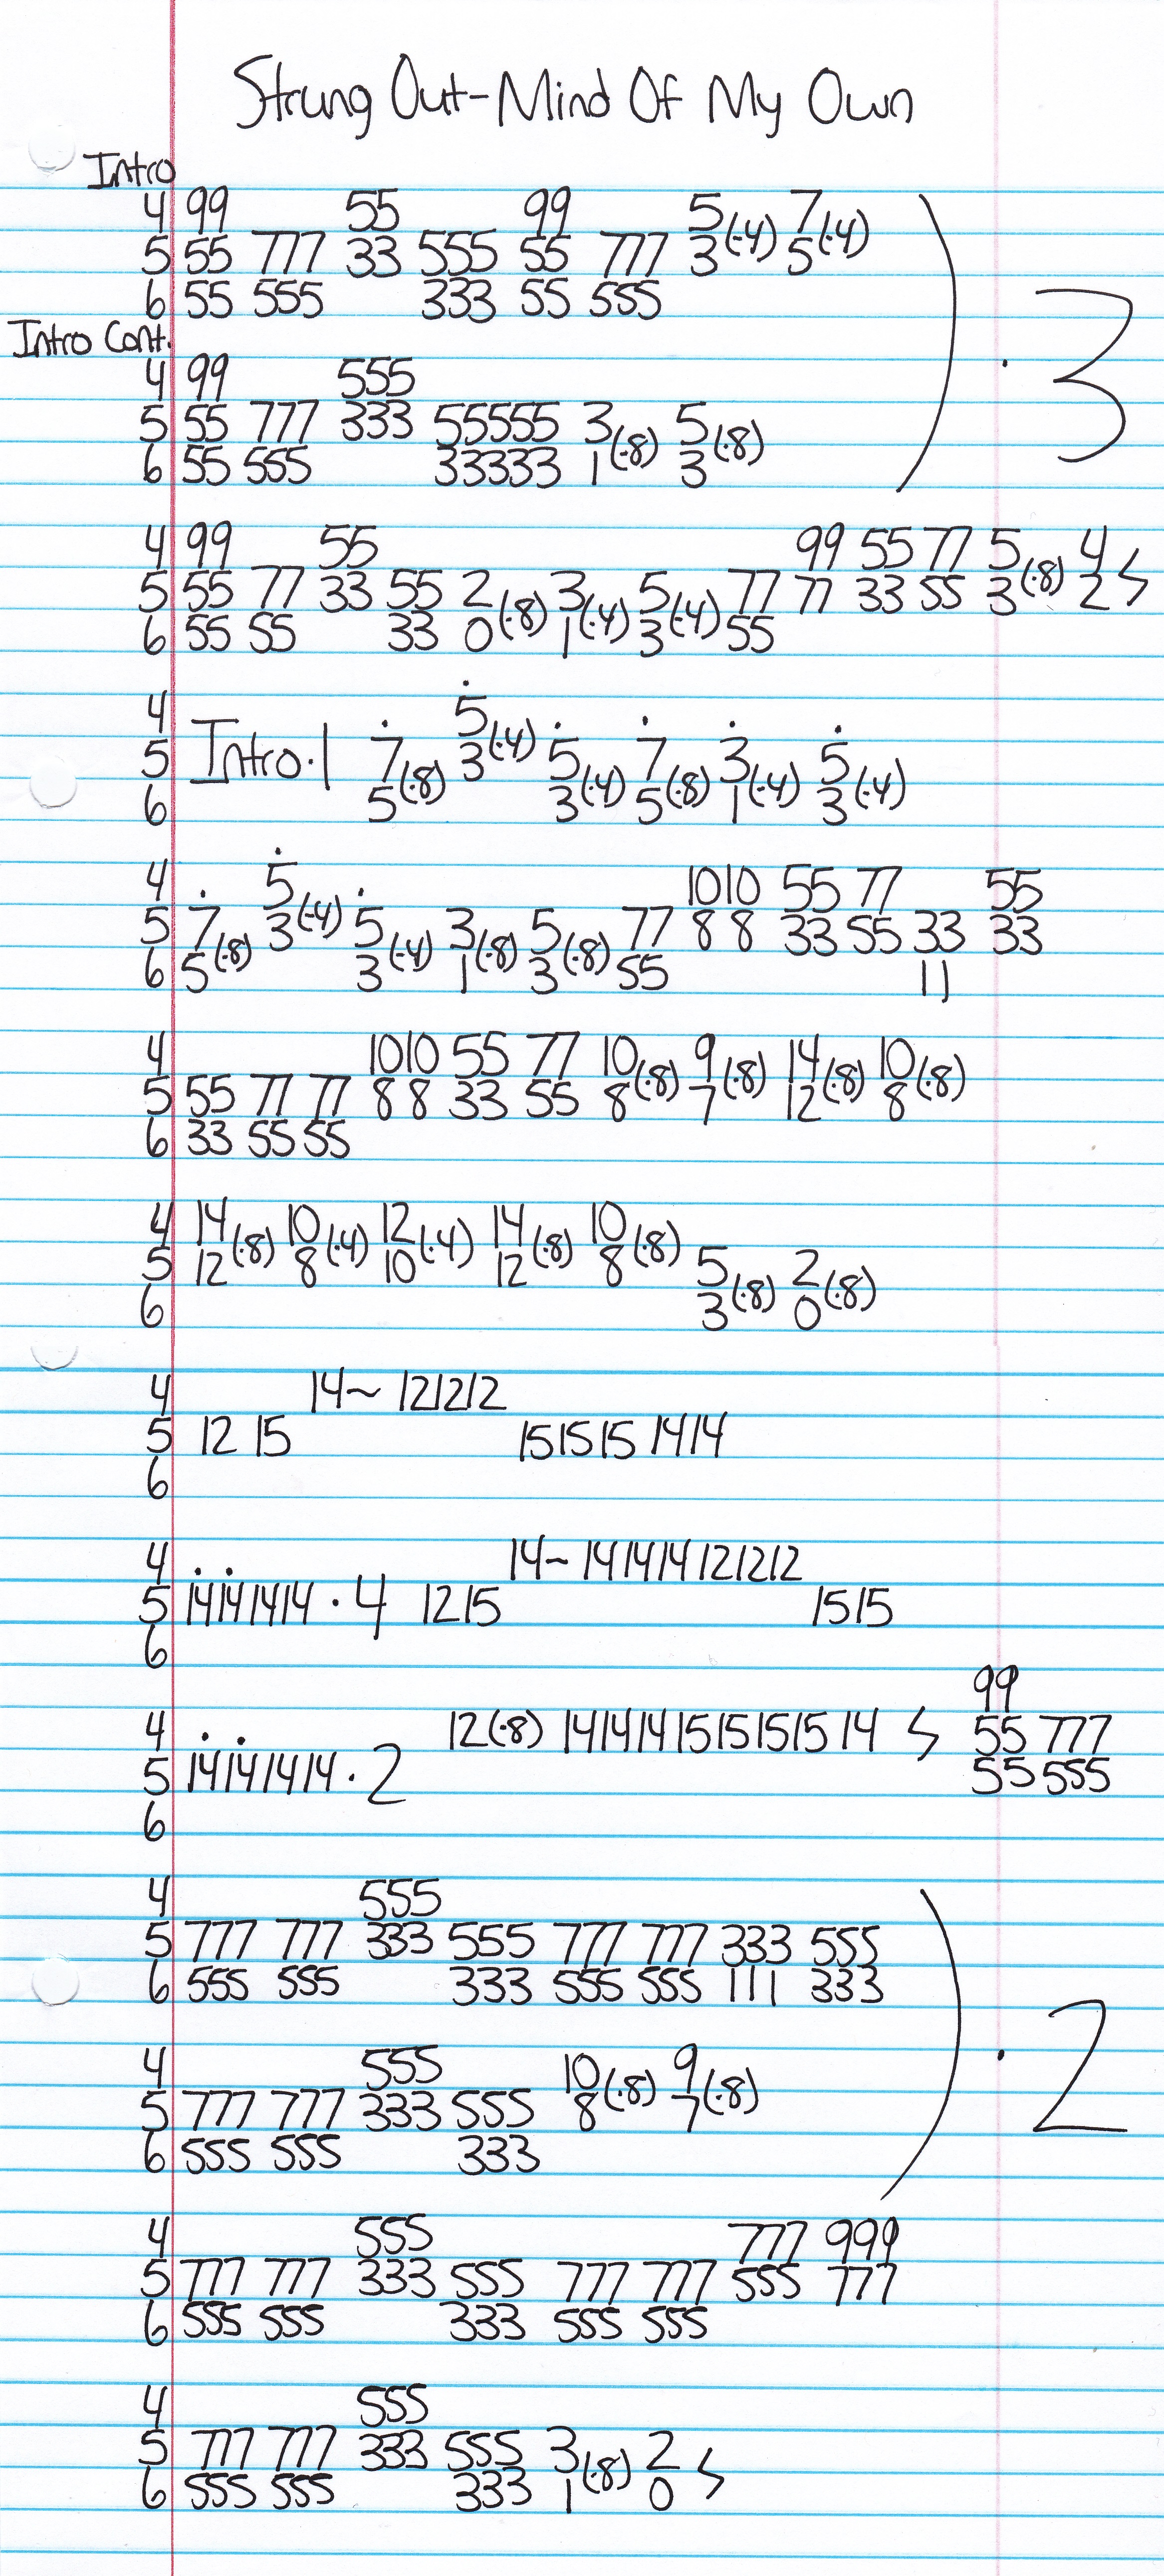 Strung Out-Mind Of My Own
Intro
4 99 55 99 5(·4) 7(·4)
5 55 777 33 555 55 777 3 5
6 55 555 333 55 555
) · 3
Intro Cont.
4 99 555
5 55 777 333 55555 3(·8) 5(·8)
6 55 555 33333 1 3
4 99 55 99 55 77 5(·8) 4
5 55 77 33 55 2(·8) 3(·4) 5(·4) 77 77 33 55 3 2
6 55 55 33 0 1 3 55
4 5(·4)
5 Intro·1 7(·8) 3 5(·4) 7(·8) 3(·4) 5(·4)
6 5 3 5 1 3
4 5(·4) 1010 55 77 55
5 7(·8) 3 5(·4) 3(·8) 5(·8) 77 8 8 33 55 33 33
6 5 3 1 3 55 11
4 1010 55 77 10(·8) 9(·8) 14(·8) 10(·8)
5 55 77 77 8 8 33 55 8 7 12 8
6 33 55 55
4 14(·8) 10(·4) 12(·4) 14(·8) 10(·8)
5 12 8 10 12 8 5(·8) 2(·8)
6 3 0
4 14~ 121212
5 12 15 151515 1414
6
4 14~ 141414121212
5 14141414 · 4 1215 1515
6
99
4 12(·8) 14141415151515 14 55 777
5 14141414 · 2 55 555
6
4 555
5 777 777 333 555 777 777 333 555
6 555 555 333 555 555 111 333
) · 2
4 555 10(·8) 9(·8)
5 777 777 333 555 8 7
6 555 555 333
4 555 777 999
5 777 777 333 555 777 777 555 777
6 555 555 333 555 555
4 555
5 777 777 333 555 3(·8) 2
6 555 555 333 1 0